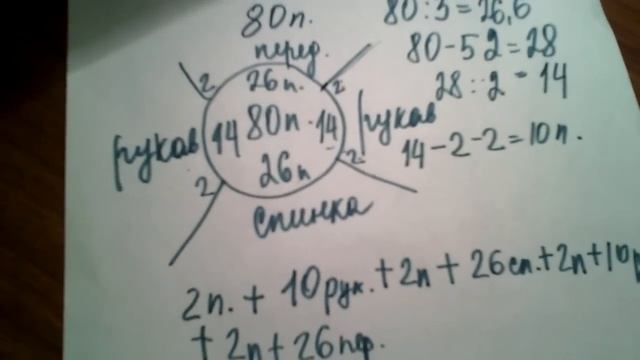 80п.
перед.
80:3=26,6
80-52=28
28:2=14
14-2-2=10п.
2 26п. 2
рукав 14 80п. 14 рукав
2 26п 2
спинка
2п. + 10рук. + 2п + 26сп. + 2п + 10р
+ 2п + 26пер.